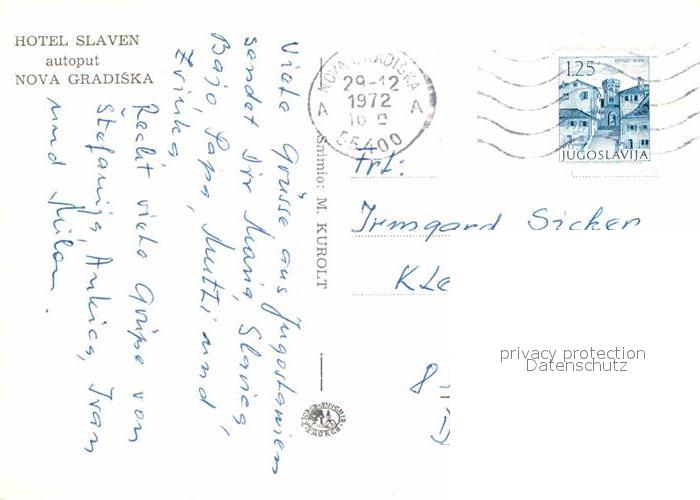 HOTEL SLAVEN
autoput
NOVA GRADIŠKA
Viele Grüsse aus Jugoslawien
sendet Dir Maria, Slavica,
Bajo, Papa, Mutti und
Zvinka
Recht viele Grüsse von
Stefanija, Ankica, Ivan
und Milan.
Snimio: M. KUROLT
NOVA GRADIŠKA
29-12
1972
A A
16
55400
1,25
JUGOSLAVIJA
Frl:
Irmgard Sicker
Kle
8
D
privacy protection
Datenschutz